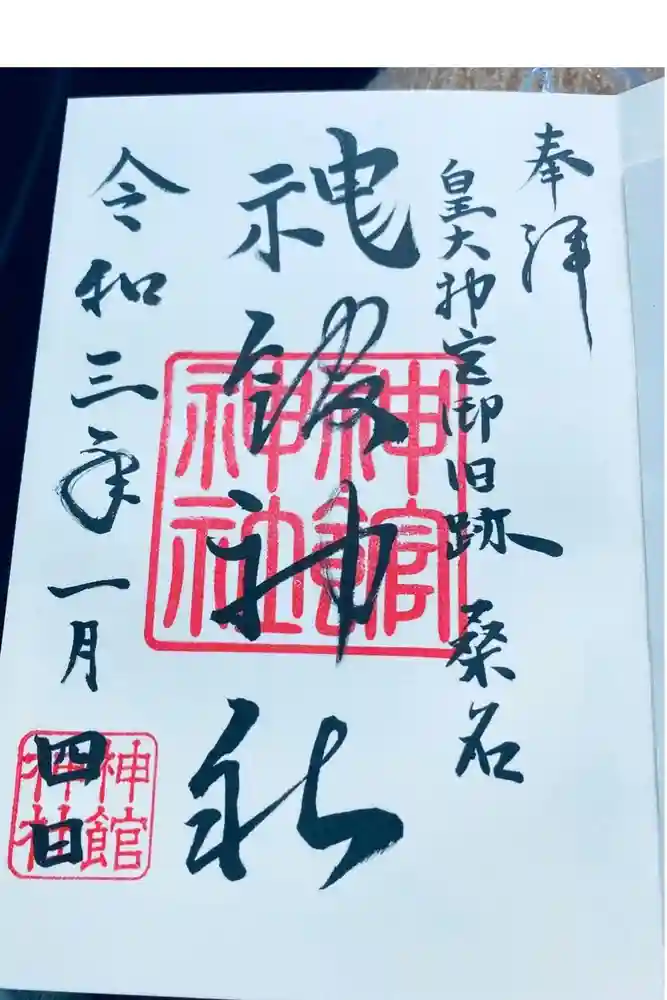 奉拝
皇大神宮御旧跡 桑名
神館神社
令和三年一月四日
神館
神社
神館
神社